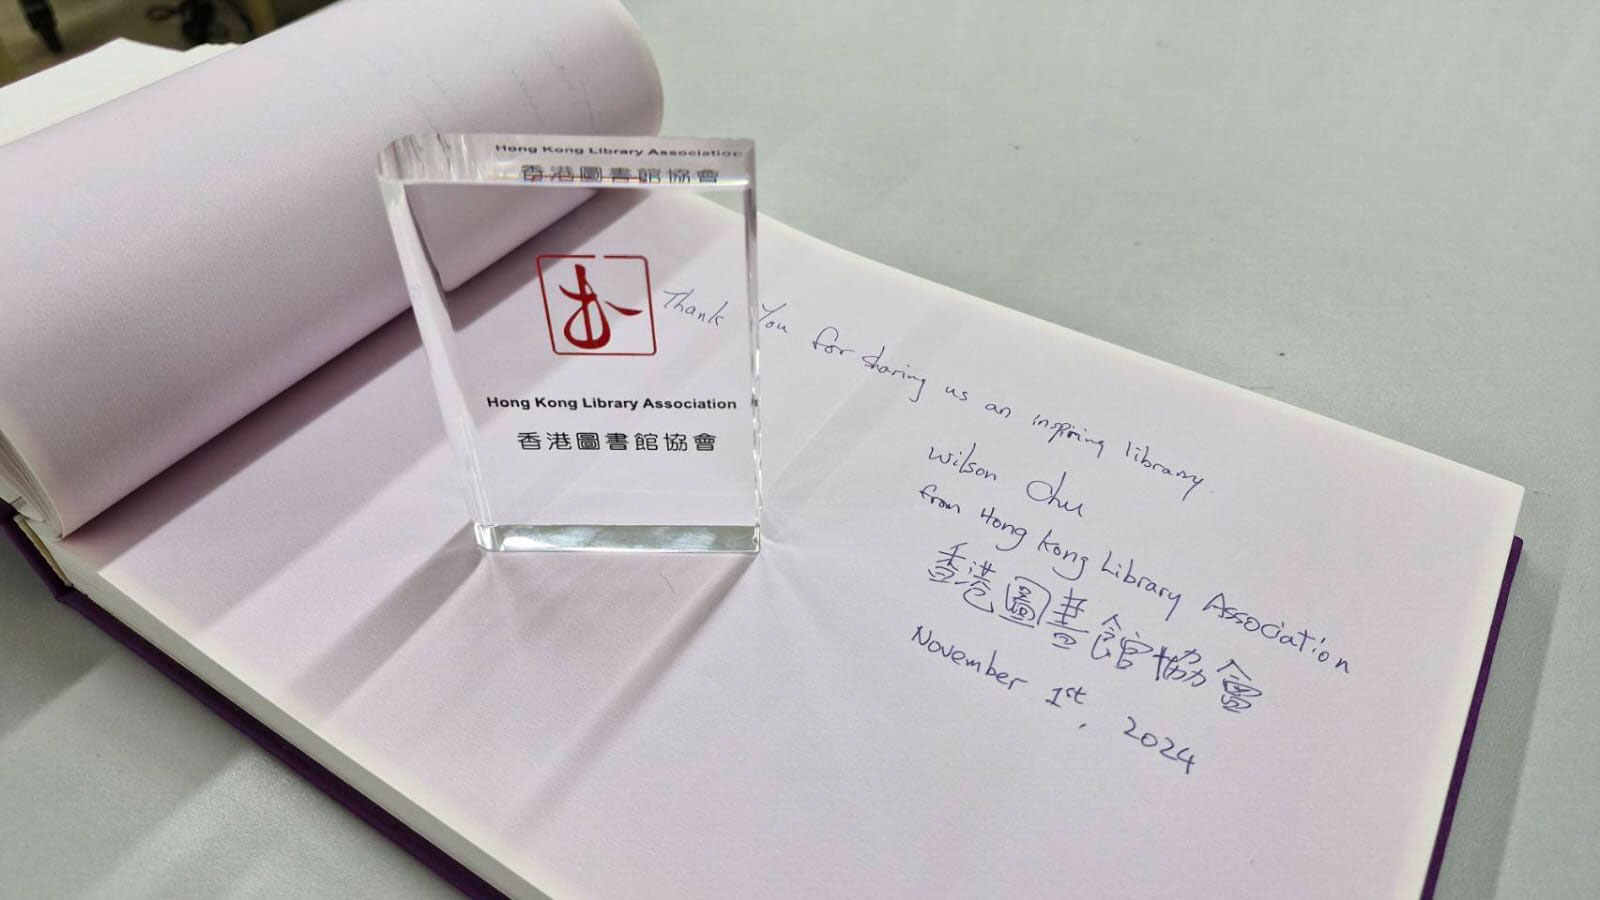 Hong Kong Library Association
香港圖書館協會
书
Hong Kong Library Association
香港圖書館協會
Thank You for sharing us an inspiring library.
Wilson Chu
from Hong Kong Library Association
香港圖書館協會
November 1st, 2024